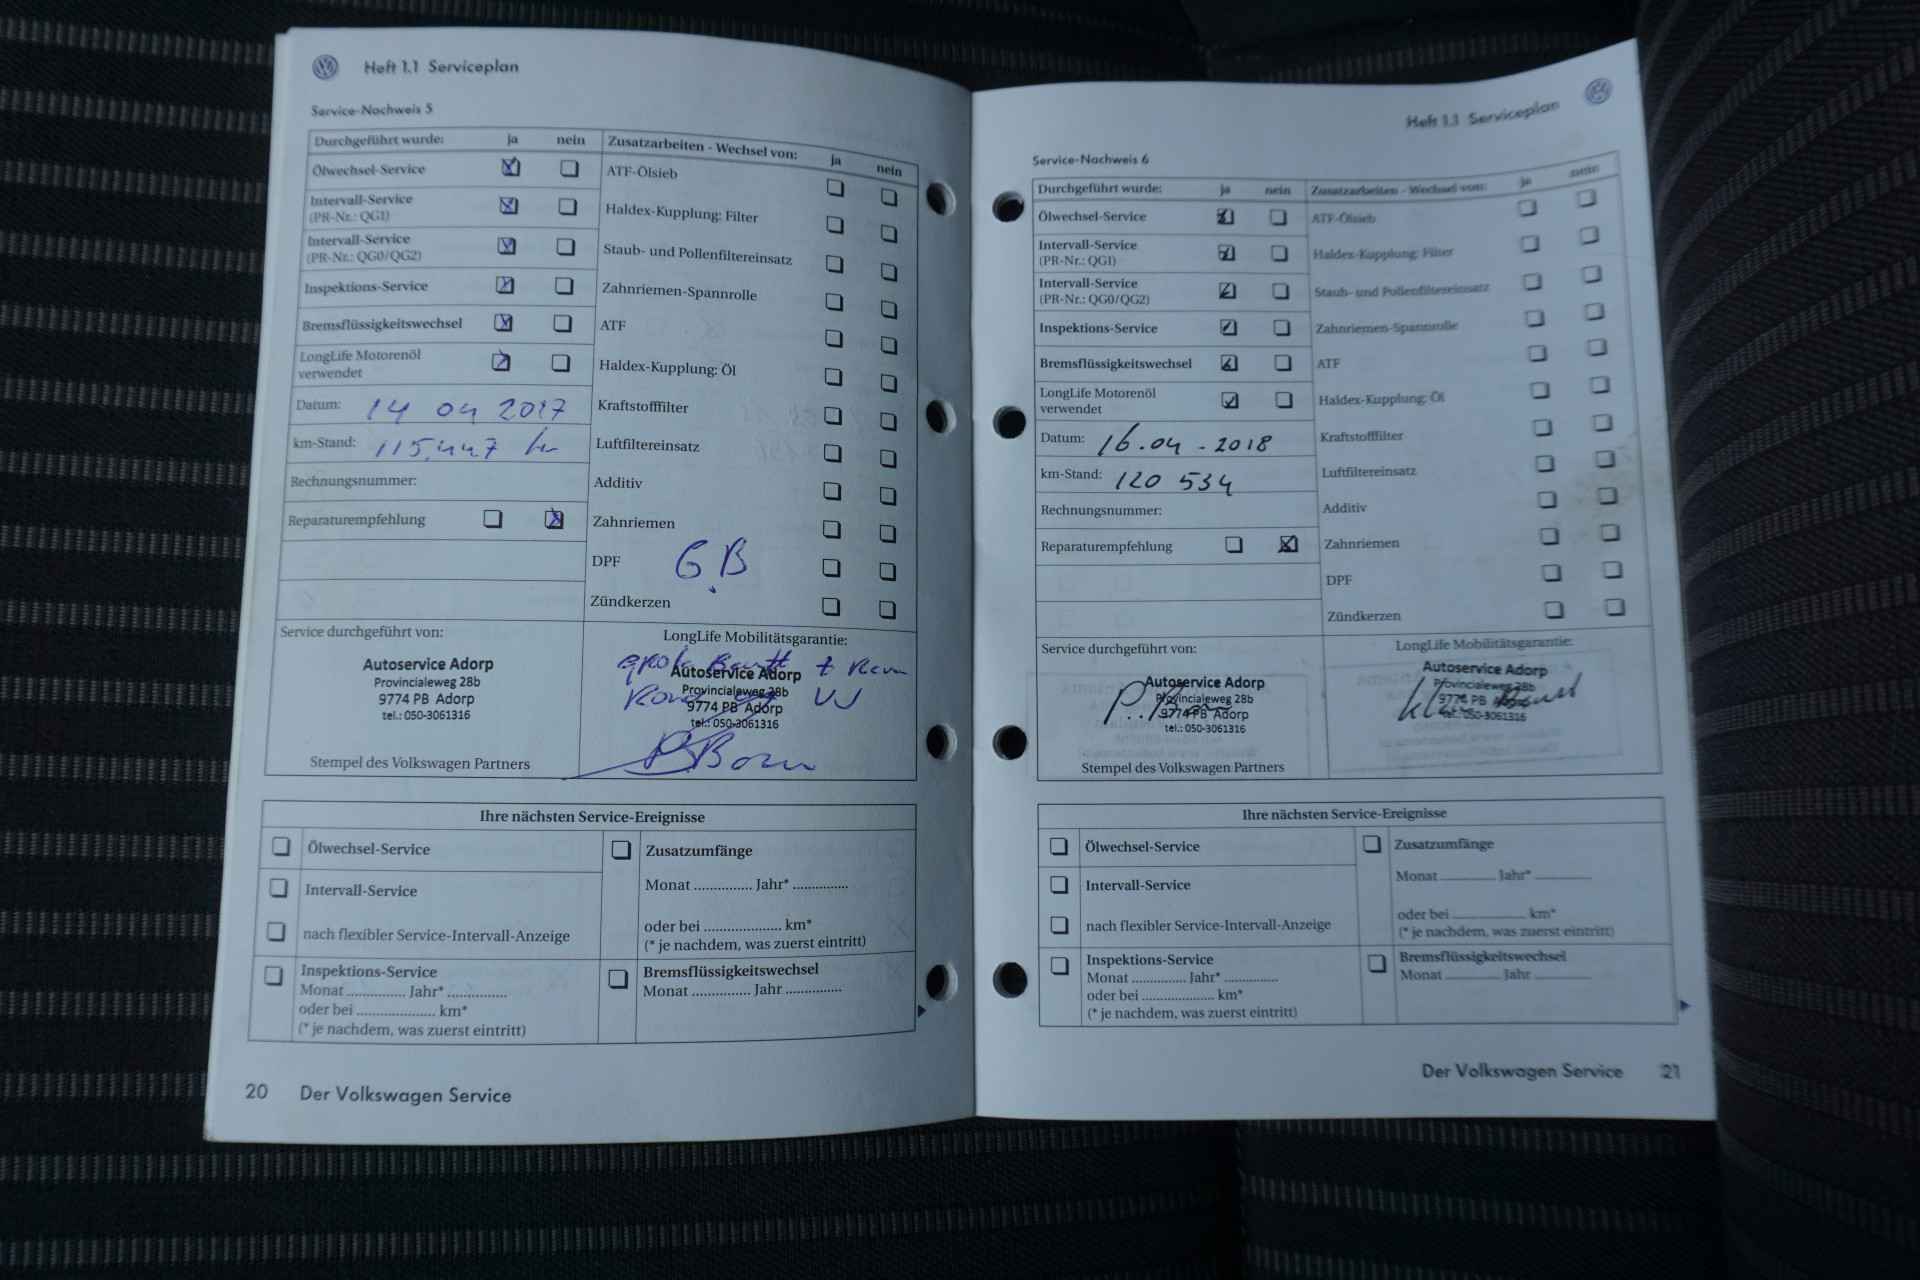 Heft 1.1 Serviceplan
Service-Nachweis 5
Durchgeführt wurde: ja nein
Ölwechsel-Service
Intervall-Service
(PR-Nr.: QG1)
Intervall-Service
(PR-Nr.: QG0/QG2)
Inspektions-Service
Bremsflüssigkeitswechsel
LongLife Motorenöl
verwendet
Datum: 14 04 2017
km-Stand: 115.447 km
Rechnungsnummer:
Reparaturempfehlung
Zusatzarbeiten - Wechsel von: ja nein
ATF-Ölsieb
Haldex-Kupplung: Filter
Staub- und Pollenfiltereinsatz
Zahnriemen-Spannrolle
ATF
Haldex-Kupplung: Öl
Kraftstofffilter
Luftfiltereinsatz
Additiv
Zahnriemen
DPF
G.B
Zündkerzen
Service durchgeführt von:
Autoservice Adorp
Provincialeweg 28b
9774 PB Adorp
tel.: 050-3061316
Stempel des Volkswagen Partners
LongLife Mobilitätsgarantie:
Autoservice Adorp
Provincialeweg 28b
9774 PB Adorp
tel.: 050-3061316
Ihre nächsten Service-Ereignisse
Ölwechsel-Service
Intervall-Service
nach flexibler Service-Intervall-Anzeige
Inspektions-Service
Monat ............... Jahr* ...............
oder bei .................... km*
(* je nachdem, was zuerst eintritt)
Zusatzumfänge
Monat ............... Jahr* ..............
oder bei .................... km*
(* je nachdem, was zuerst eintritt)
Bremsflüssigkeitswechsel
Monat ............... Jahr ...............
20 Der Volkswagen Service
Heft 1.1 Serviceplan
Service-Nachweis 6
Durchgeführt wurde: ja nein
Ölwechsel-Service
Intervall-Service
(PR-Nr.: QG1)
Intervall-Service
(PR-Nr.: QG0/QG2)
Inspektions-Service
Bremsflüssigkeitswechsel
LongLife Motorenöl
verwendet
Datum: 16.04 - 2018
km-Stand: 120 534
Rechnungsnummer:
Reparaturempfehlung
Zusatzarbeiten - Wechsel von: ja nein
ATF-Ölsieb
Haldex-Kupplung: Filter
Staub- und Pollenfiltereinsatz
Zahnriemen-Spannrolle
ATF
Haldex-Kupplung: Öl
Kraftstofffilter
Luftfiltereinsatz
Additiv
Zahnriemen
DPF
Zündkerzen
Service durchgeführt von:
Autoservice Adorp
Provincialeweg 28b
9774 PB Adorp
tel.: 050-3061316
Stempel des Volkswagen Partners
LongLife Mobilitätsgarantie:
Autoservice Adorp
Provincialeweg 28b
9774 PB Adorp
tel.: 050-3061316
Ihre nächsten Service-Ereignisse
Ölwechsel-Service
Intervall-Service
nach flexibler Service-Intervall-Anzeige
Inspektions-Service
Monat ............... Jahr* ...............
oder bei .................... km*
(* je nachdem, was zuerst eintritt)
Zusatzumfänge
Monat ............... Jahr* ...............
oder bei .................... km*
(* je nachdem, was zuerst eintritt)
Bremsflüssigkeitswechsel
Monat ............... Jahr ...............
Der Volkswagen Service 21